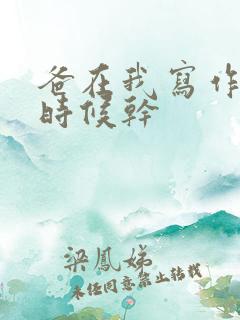 爸在我寫作
時候幹
梁鳳娣
未任同意禁止转载